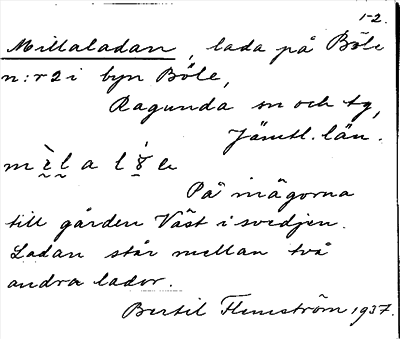 1-2.
Millaladan, lada på Böle
n:r 2 i byn Böle,
Ragunda sn och tg,
Jämtl. län.
På mågorna
till gården Väst i svedjen.
Ladan står mellan två
andra lador.
Bertil Flemström 1937.